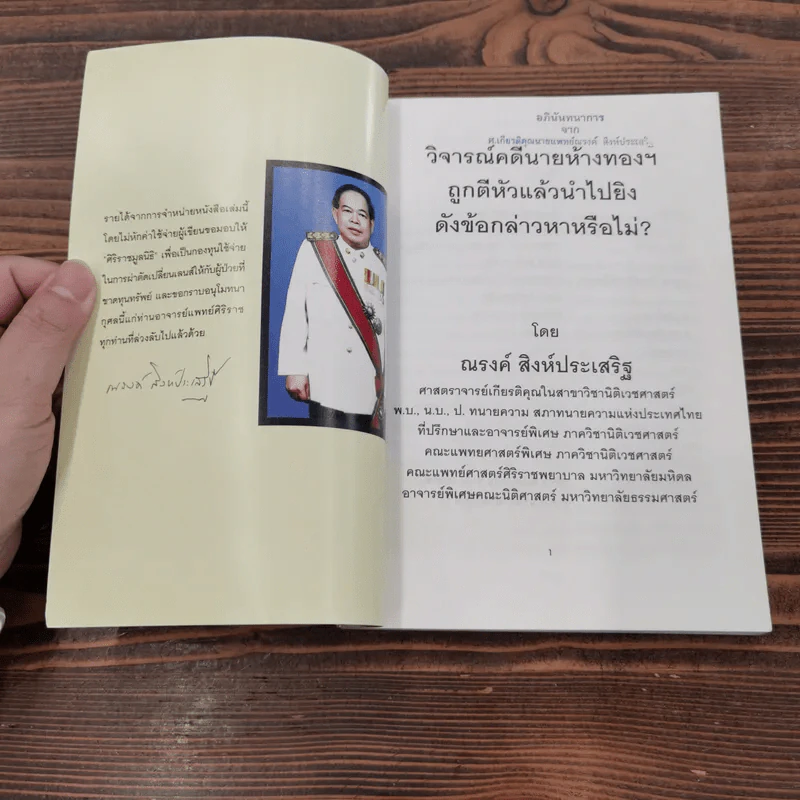 รายได้จากการจำหน่ายหนังสือเล่มนี้
โดยไม่หักค่าใช้จ่ายผู้เขียนขอมอบให้
"ศิริราชมูลนิธิ" เพื่อเป็นกองทุนใช้จ่าย
ในการผ่าตัดเปลี่ยนเลนส์ให้กับผู้ป่วยที่
ขาดทุนทรัพย์ และขอกราบอนุโมทนา
กุศลนี้แก่ท่านอาจารย์แพทย์ศิริราช
ทุกท่านที่ล่วงลับไปแล้วด้วย
ณรงค์ สิงห์ประเสริฐ
อภินันทนาการ
จาก
ศ.เกียรติคุณนายแพทย์ณรงค์ สิงห์ประเส
วิจารณ์คดีนายห้างทองฯ
ถูกตีหัวแล้วนำไปยิง
ดังข้อกล่าวหาหรือไม่?
โดย
ณรงค์ สิงห์ประเสริฐ
ศาสตราจารย์เกียรติคุณในสาขาวิชานิติเวชศาสตร์
พ.บ., น.บ., ป. ทนายความ สภาทนายความแห่งประเทศไทย
ที่ปรึกษาและอาจารย์พิเศษ ภาควิชานิติเวชศาสตร์
คณะแพทยศาสตร์พิเศษ ภาควิชานิติเวชศาสตร์
คณะแพทย์ศาสตร์ศิริราชพยาบาล มหาวิทยาลัยมหิดล
อาจารย์พิเศษคณะนิติศาสตร์ มหาวิทยาลัยธรรมศาสตร์
1